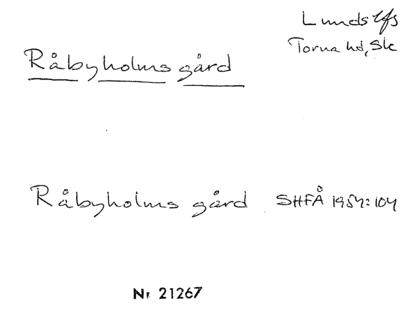 Lunds lfs
Torna hd, Sk
Råbyholms gård
Råbyholms gård SHFÅ 1957:104
Nr 21267